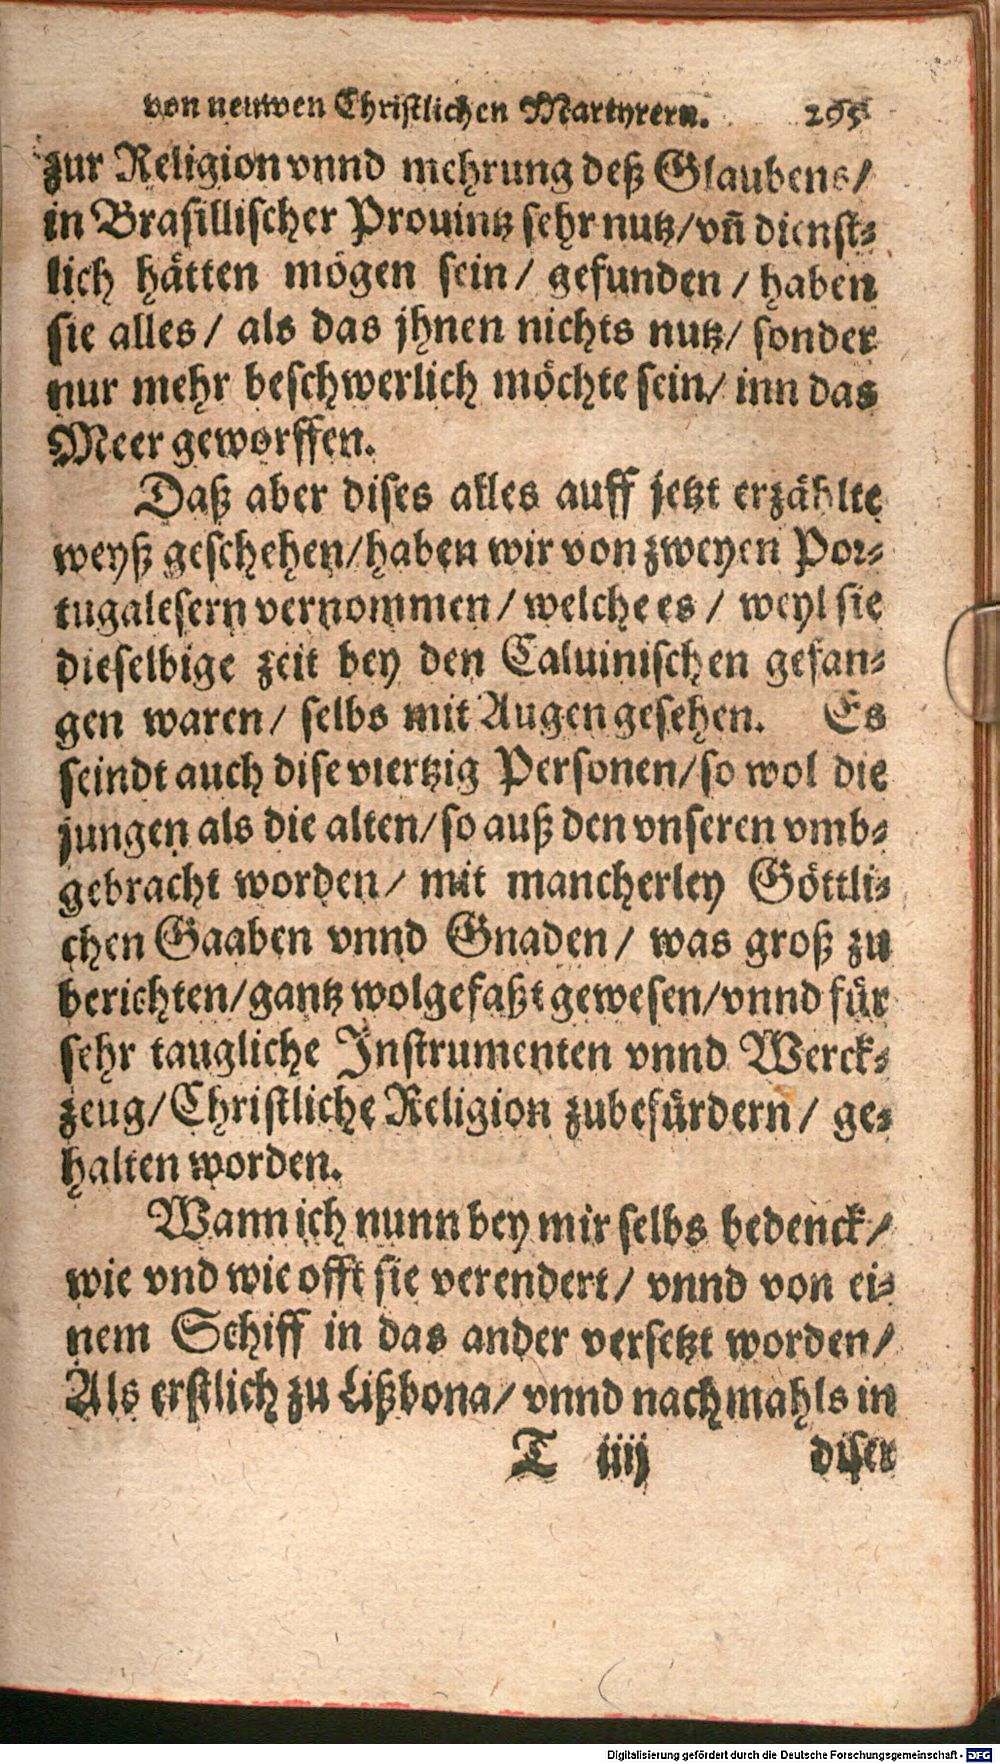 von neuwen Christlichen Martyrern. 295
zur Religion vnnd mehrung deß Glaubens/
in Brasillischer Prouintz sehr nutz/vñ dienst⸗
lich hätten mögen sein/ gefunden / haben
sie alles/ als das jhnen nichts nutz/ sonder
nur mehr beschwerlich möchte sein/ inn das
Meer geworffen.
Daß aber dises alles auff jetzt erzählte
weyß geschehen/haben wir von zweyen Por⸗
tugalesern vernommen/ welche es / weyl sie
dieselbige zeit bey den Caluinischen gefan⸗
gen waren/ selbs mit Augen gesehen. Es
seindt auch dise viertzig Personen/so wol die
jungen als die alten/so auß den vnseren vmb⸗
gebracht worden/ mit mancherley Göttli⸗
chen Gaaben vnnd Gnaden/ was groß zu
berichten/gantz wolgefaßt gewesen/vnnd für
sehr taugliche Instrumenten vnnd Werck⸗
zeug/Christliche Religion zubefürdern/ ge⸗
halten worden.
Wann ich nunn bey mir selbs bedenck/
wie vnd wie offt sie verendert/ vnnd von ei⸗
nem Schiff in das ander versetzt worden/
Als erstlich zu Lißbona/ vnnd nachmahls in
T iiij diser
Digitalisierung gefördert durch die Deutsche Forschungsgemeinschaft - DFG